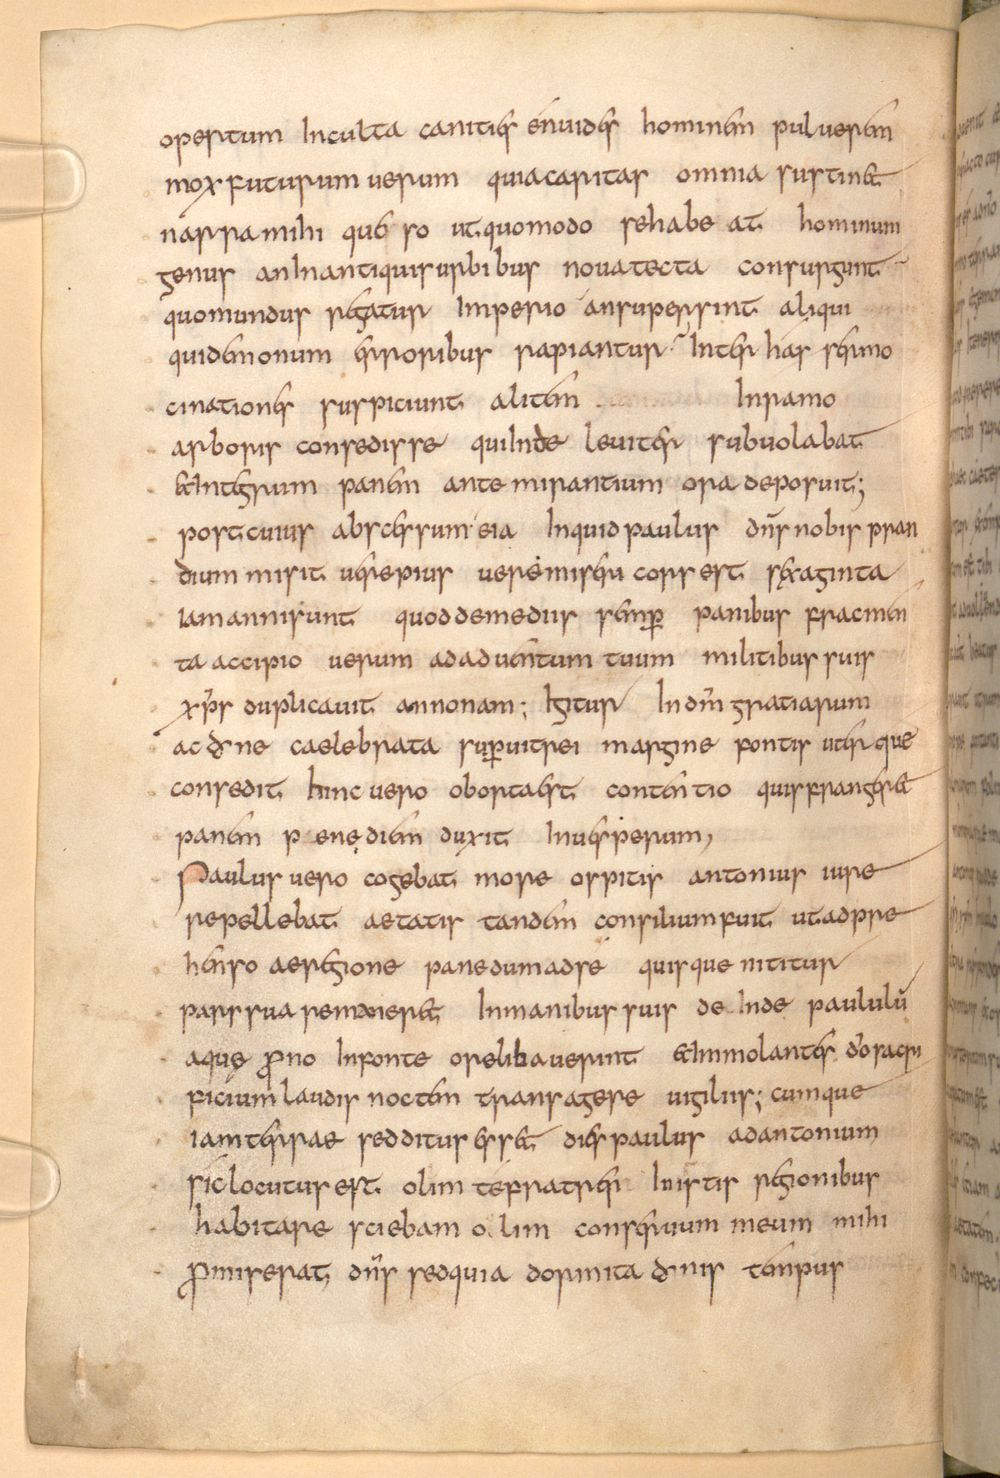 opertum Inculta canities enuides hominem puluerem
mox futurum uerum quia caritas omnia sustinet
narra mihi queso ut quomodo sehabe at hominum
genus an Inantiquis urbibus noua tecta consurgunt
quo mundus regatur Imperio an supersint aliqui
quidemonum erroribus rapiantur. Inter has sermo
cinationes suspiciunt alitem Inramo
arboris consedisse quiInde leuiter subuolabat
et Integrum panem ante mirantium ora deposuit;
post cuius abscessum eia Inquid paulus dns nobis pran
dium misit uere pius uere misericors est sexaginta
iam anni sunt quod demediis semper panibus fracmen
ta accipio uerum ad aduentum tuum militibus suis
xps duplicauit annonam; Igitur Indm gratiarum
actione caelebrata super uitrei margine fontis uterque
consedit hinc uero oborta est contentio quis frangeret
panem p ene diem duxit Inuesperum,
Paulus uero cogebat more ospitis antonius iure
repellebat aetatis tandem consilium fuit ut adpre
henso aeregione pane dum adse quisque nititur
pars sua remaneret Inmanibus suis de Inde paululu
aque prono Infonte ore libauerunt et Immolantes do sacri
ficium laudis noctem transagere uigiliis; cumque
iam terrae redditus esset dies paulus ad antonium
sic locutus est olim te fratrer Inistis regionibus
habitare sciebam olim conseruum meum mihi
promiserat dns sed quia dormitationis tempus